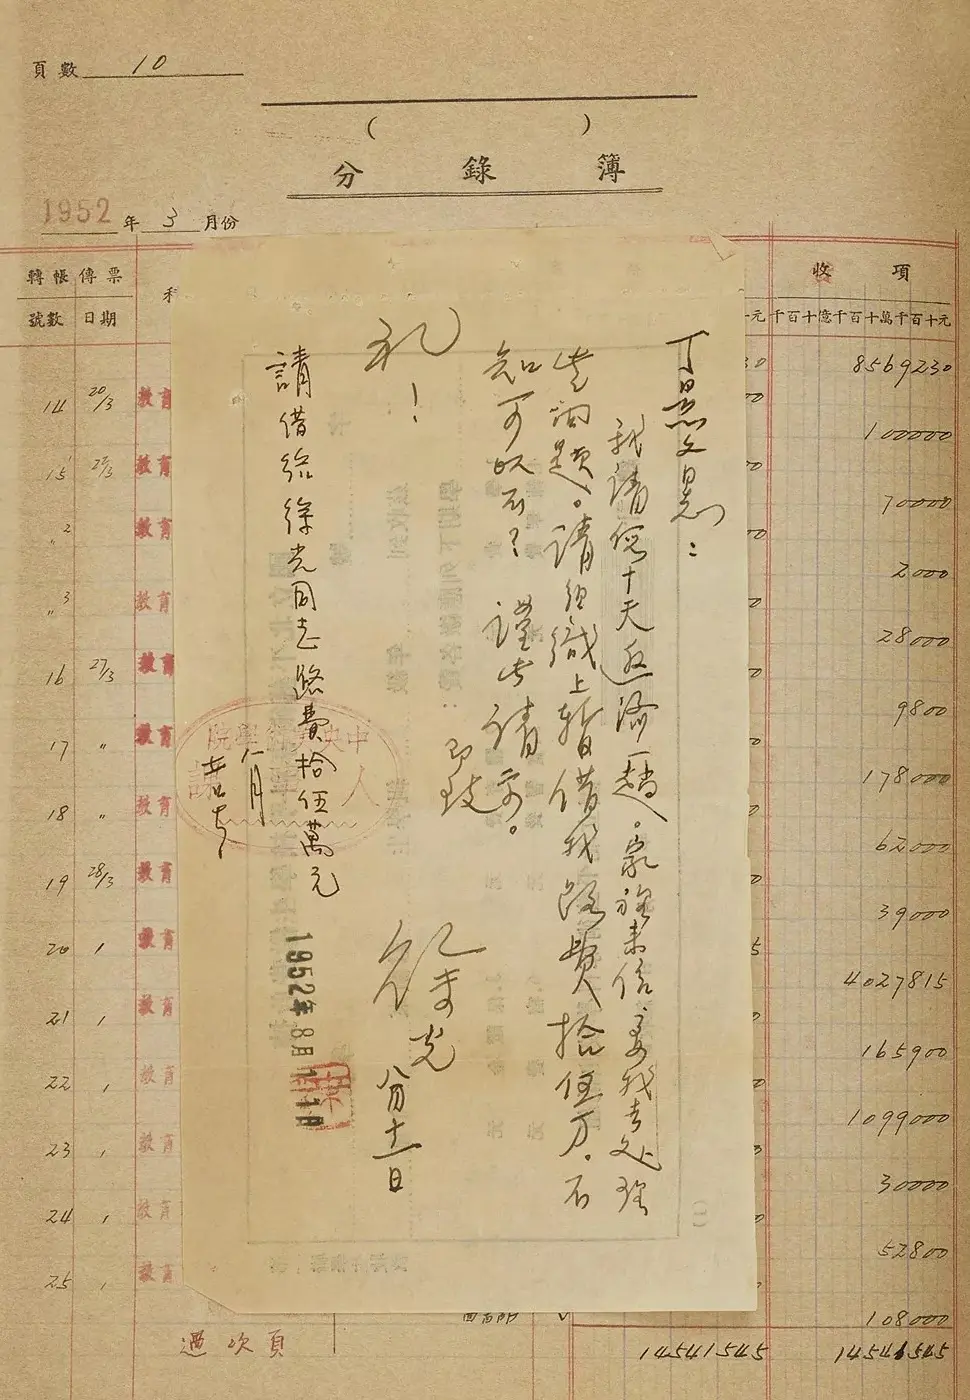 頁數 10
(　　)
分錄簿
1952年3月份
轉帳傳票
號數 日期
收項
千百十億千百十萬千百十元
14 20/3 教育
15 教育
2 教育
3 教育
16 27/3 教育
17 〃 教育
18 〃 教育
19 28/3 教育
20 教育
21 教育
22 教育
23 教育
24 教育
25 教育
8569230
100000
70000
2000
28000
9800
178000
62000
39000
4027815
165900
1099000
30000
52800
108000
過次頁
14541545
14541545
我請假十天返濟一趟。家裡来信要我去处理
些問題。請組織上暂借我路费拾伍万。不
知可以否？謹此請示。
即致
礼！
徐幸光
八月十一日
請借給徐光同志路費拾伍萬元
八月
中央美術學院
人
課
1952年8月11日